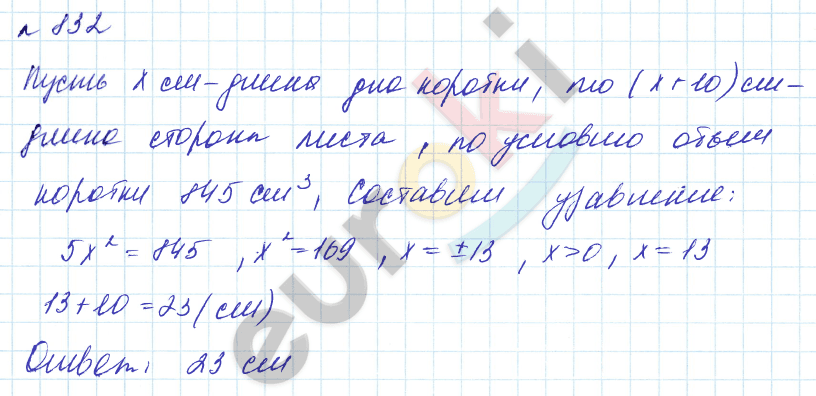 № 832
Пусть x см – длина дна коробки, то (x+10) см –
длина стороны листа, по условию объем
коробки 845 см³, составим уравнение:
5x² = 845, x² = 169, x = ±13, x>0, x = 13
13+10 = 23 (см)
Ответ: 23 см
euroki